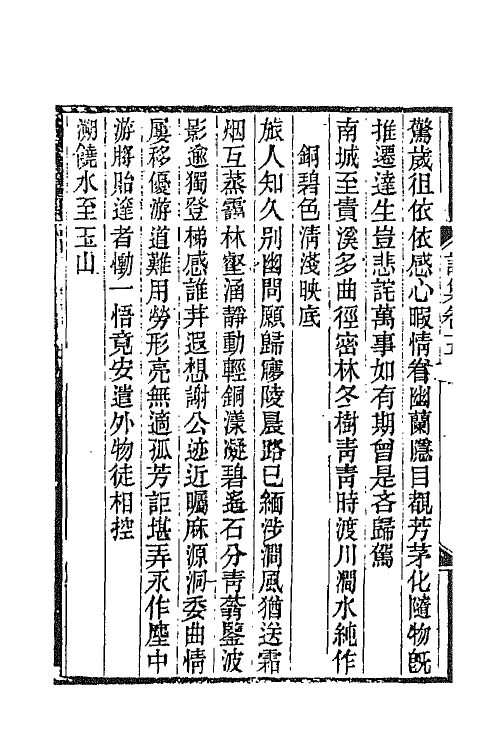 驚歲徂依依感心暇情眷幽蘭隱目覩芳茅化隨物旣
推遷達生豈悲詫萬事如有期曾是吝歸駕
南城至貴溪多曲徑密林冬樹靑靑時渡川澗水純作
銅碧色淸淺映底
旅人知久別幽問願歸廖陵晨路已緬涉澗風猶送霜
烟互蒸靄林壑涵靜動輕銅漾凝碧遙石分靑蒨鑒波
影逾獨登梯感誰幷遐想謝公迹近矚麻源洞委曲情
屢移優游道難用勞形亮無適孤芳詎堪弄永作塵中
游將貽達者慟一悟竟安遣外物徒相控
溯饒水至玉山